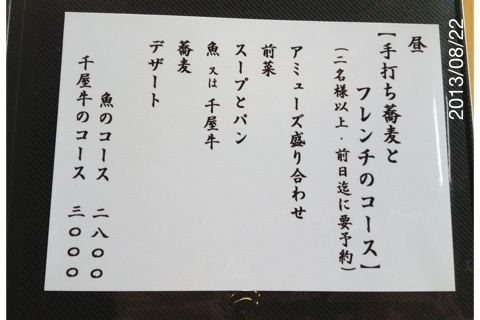 昼
【手打ち蕎麦と
フレンチのコース】
(二名様以上・前日迄に要予約)
アミューズ盛り合わせ
前菜
スープとパン
魚又は千屋牛
蕎麦
デザート
魚のコース 二八〇〇
千屋牛のコース 三〇〇〇
2013/08/22